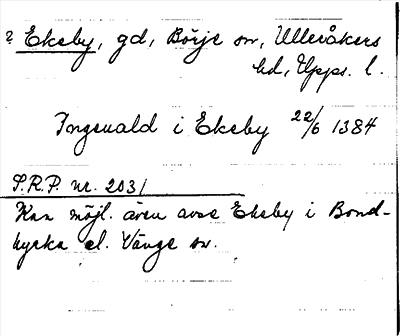 ? Ekeby, gd, Börje sn, Ulleråkers
hd, Upps. l.
Ingevald i Ekeby 22/6 1384
S.R.P. nr. 2031
Kan möjl. även avse Ekeby i Bond-
kyrka el. Vänge sn.